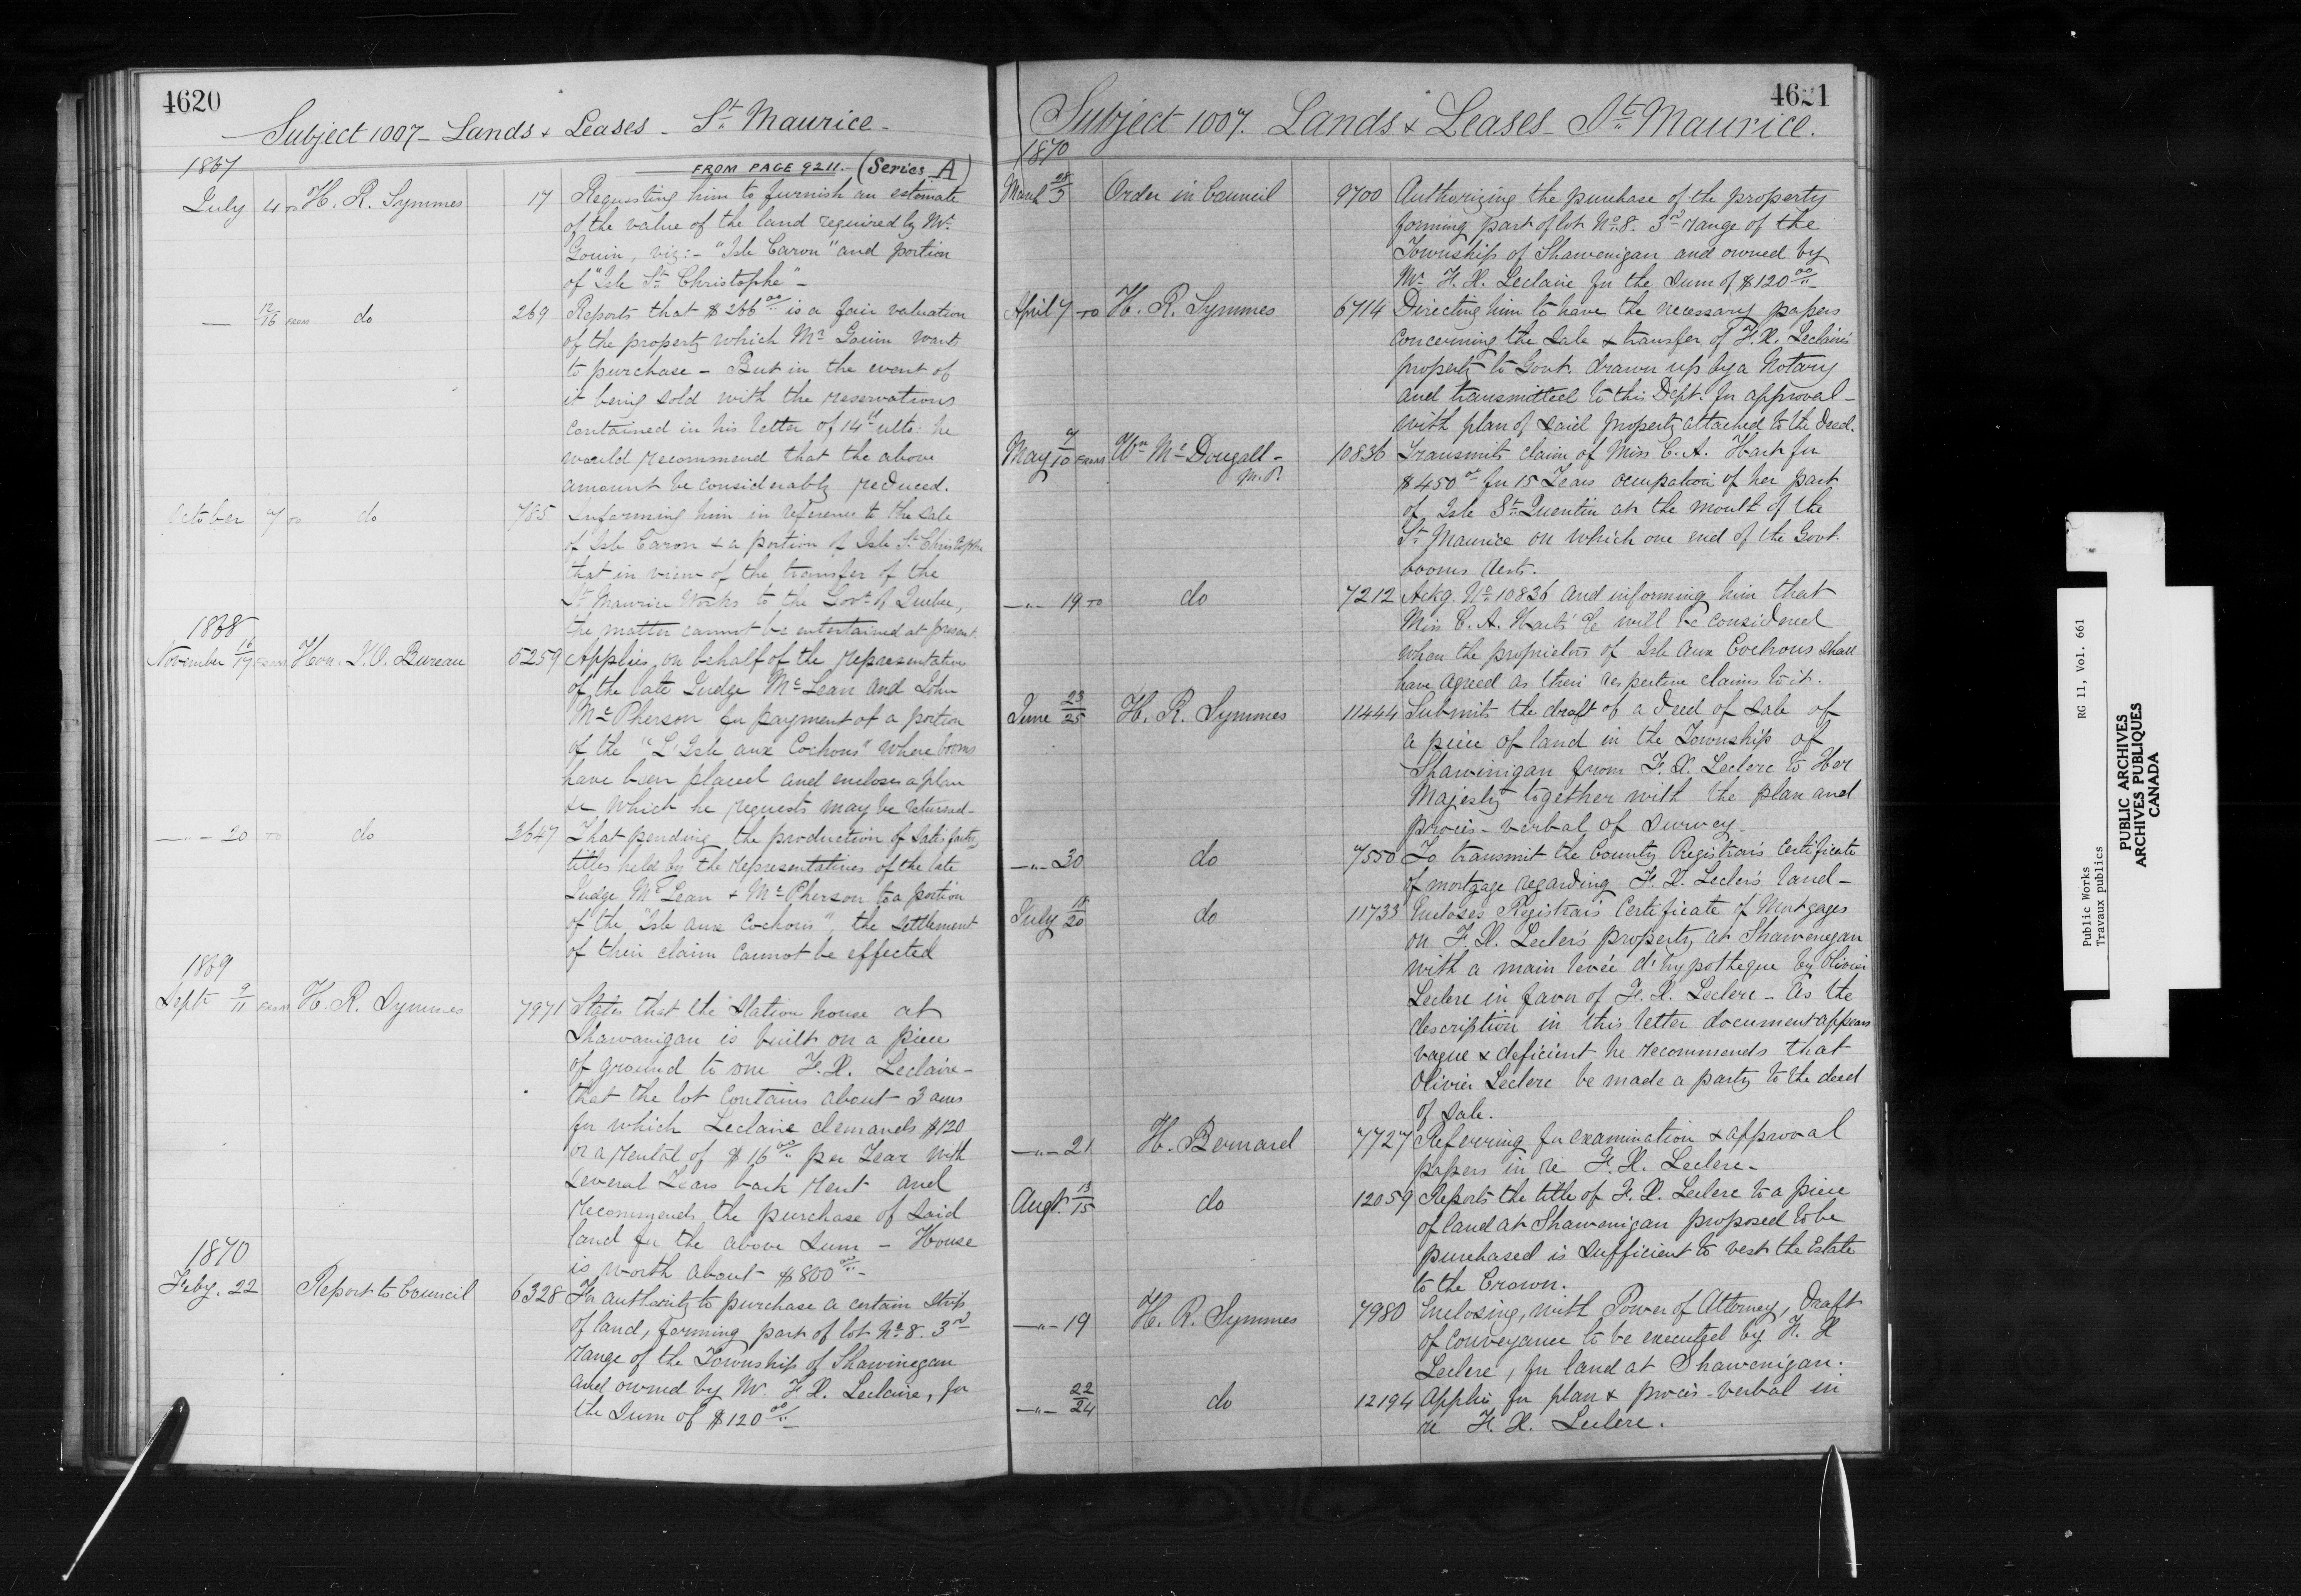 4620
Subject 1007 - Lands & Leases - St. Maurice -
1867
FROM PAGE 9211. - (Series A)
July 4 TO H. R. Symmes 17 Requesting him to furnish an estimate
of the value of the land required by Mr.
Gouin, viz: - "Isle Caron" and portion
of "Isle St. Christophe" -
— 12/16 FROM do 269 Reports that $266.00 is a fair valuation
of the property which Mr. Gouin wants
to purchase - But in the event of
it being sold with the reservations
contained in his letter of 14th ulto. he
would recommend that the above
amount be considerably reduced.
October 7 TO do 785 Informing him in reference to the sale
of Isle Caron & a portion of Isle St. Christophe
that in view of the transfer of the
St. Maurice Works to the Govt. of Quebec,
the matter cannot be entertained at present.
1868
November 16/17 FROM Hon. J. O. Bureau 5259 Applies on behalf of the representatives
of the late Judge McLean and John
McPherson for payment of a portion
of the "L'Isle aux Cochons" where booms
have been placed and encloses a plan
&c which he requests may be returned -
— " — 20 TO do 3647 That pending the production of satisfactory
titles held by the representatives of the late
Judge McLean & McPherson to a portion
of the "Isle aux Cochons", the settlement
of their claim cannot be effected
1869
Septr 9/11 FROM H. R. Symmes 7971 States that the Station house at
Shawanigan is built on a piece
of ground to one F. X. Leclaire -
that the lot contains about 3 acres
for which Leclaire demands $120
or a rental of $16.00 per Year with
several Years back rent and
recommends the purchase of said
land for the above sum - House
is worth about $800.00 -
1870
Feby. 22 Report to Council 6328 For authority to purchase a certain strip
of land, forming part of lot No. 8. 3rd
range of the Township of Shawinegan
and owned by Mr. F. X. Leclaire, for
the sum of $120.00
4621
Subject 1007. Lands & Leases - St. Maurice.
1870
March 28/3 Order in Council 9700 Authorizing the purchase of the property
forming part of lot No. 8. 3rd range of the
Township of Shawenigan and owned by
Mr. F. X. Leclaire for the sum of $120.00
April 7 TO H. R. Symmes 6714 Directing him to have the necessary papers
concerning the sale & transfer of F. X. Leclaire's
property to Govt. drawn up by a Notary
and transmitted to this Dept. for approval -
with plan of said property attached to the deed.
May 7/10 FROM Wm McDougall -
M.P. 10836 Transmits claim of Miss C. A. Hart for
$450.00 for 15 Years ocupation of her part
of Isle St. Quentin at the mouth of the
St. Maurice on which one end of the Govt.
booms rests.
— " — 19 TO do 7212 Ackg. No. 10836 and informing him that
Miss C. A. Hart's c/c will be considered
when the proprietors of Isle aux Cochons shall
have agreed as their respective claims to it.
June 23/25 H. R. Symmes 11444 Submits the draft of a deed of sale of
a piece of land in the Township of
Shawinigan from F. X. Leclerc to Her
Majesty together with the plan and
procès-verbal of survey -
— " — 30 do 7550 To transmit the County Registrar's Certificate
of mortgage regarding F. X. Lecler's land -
July 18/20 do 11733 Encloses Registrar's Certificate of Mortgages
on F. X. Lecler's property at Shawenegan
with a main levée d'hypotheque by Olivier
Leclerc in favor of F. X. Leclerc - As the
description in this letter document appears
vague & deficient he recommends that
Olivier Leclerc be made a party to the deed
of sale.
— " — 21 H. Bernard 7727 Referring for examination & approval
papers in re F. X. Leclerc -
Augt. 13/15 do 12059 Reports the title of F. X. Leclerc to a piece
of land at Shawenigan proposed to be
purchased is sufficient to vest the Estate
to the Crown.
— " — 19 H. R. Symmes 7980 Enclosing, with Power of Attorney, Draft
of conveyance to be executed by F. X
Leclerc, for land at Shawenigan.
— " — 22/24 do 12194 Applies for plan & procès-verbal in
re F. X. Leclerc.
Public Works RG 11, Vol. 661
Travaux publics
PUBLIC ARCHIVES
ARCHIVES PUBLIQUES
CANADA